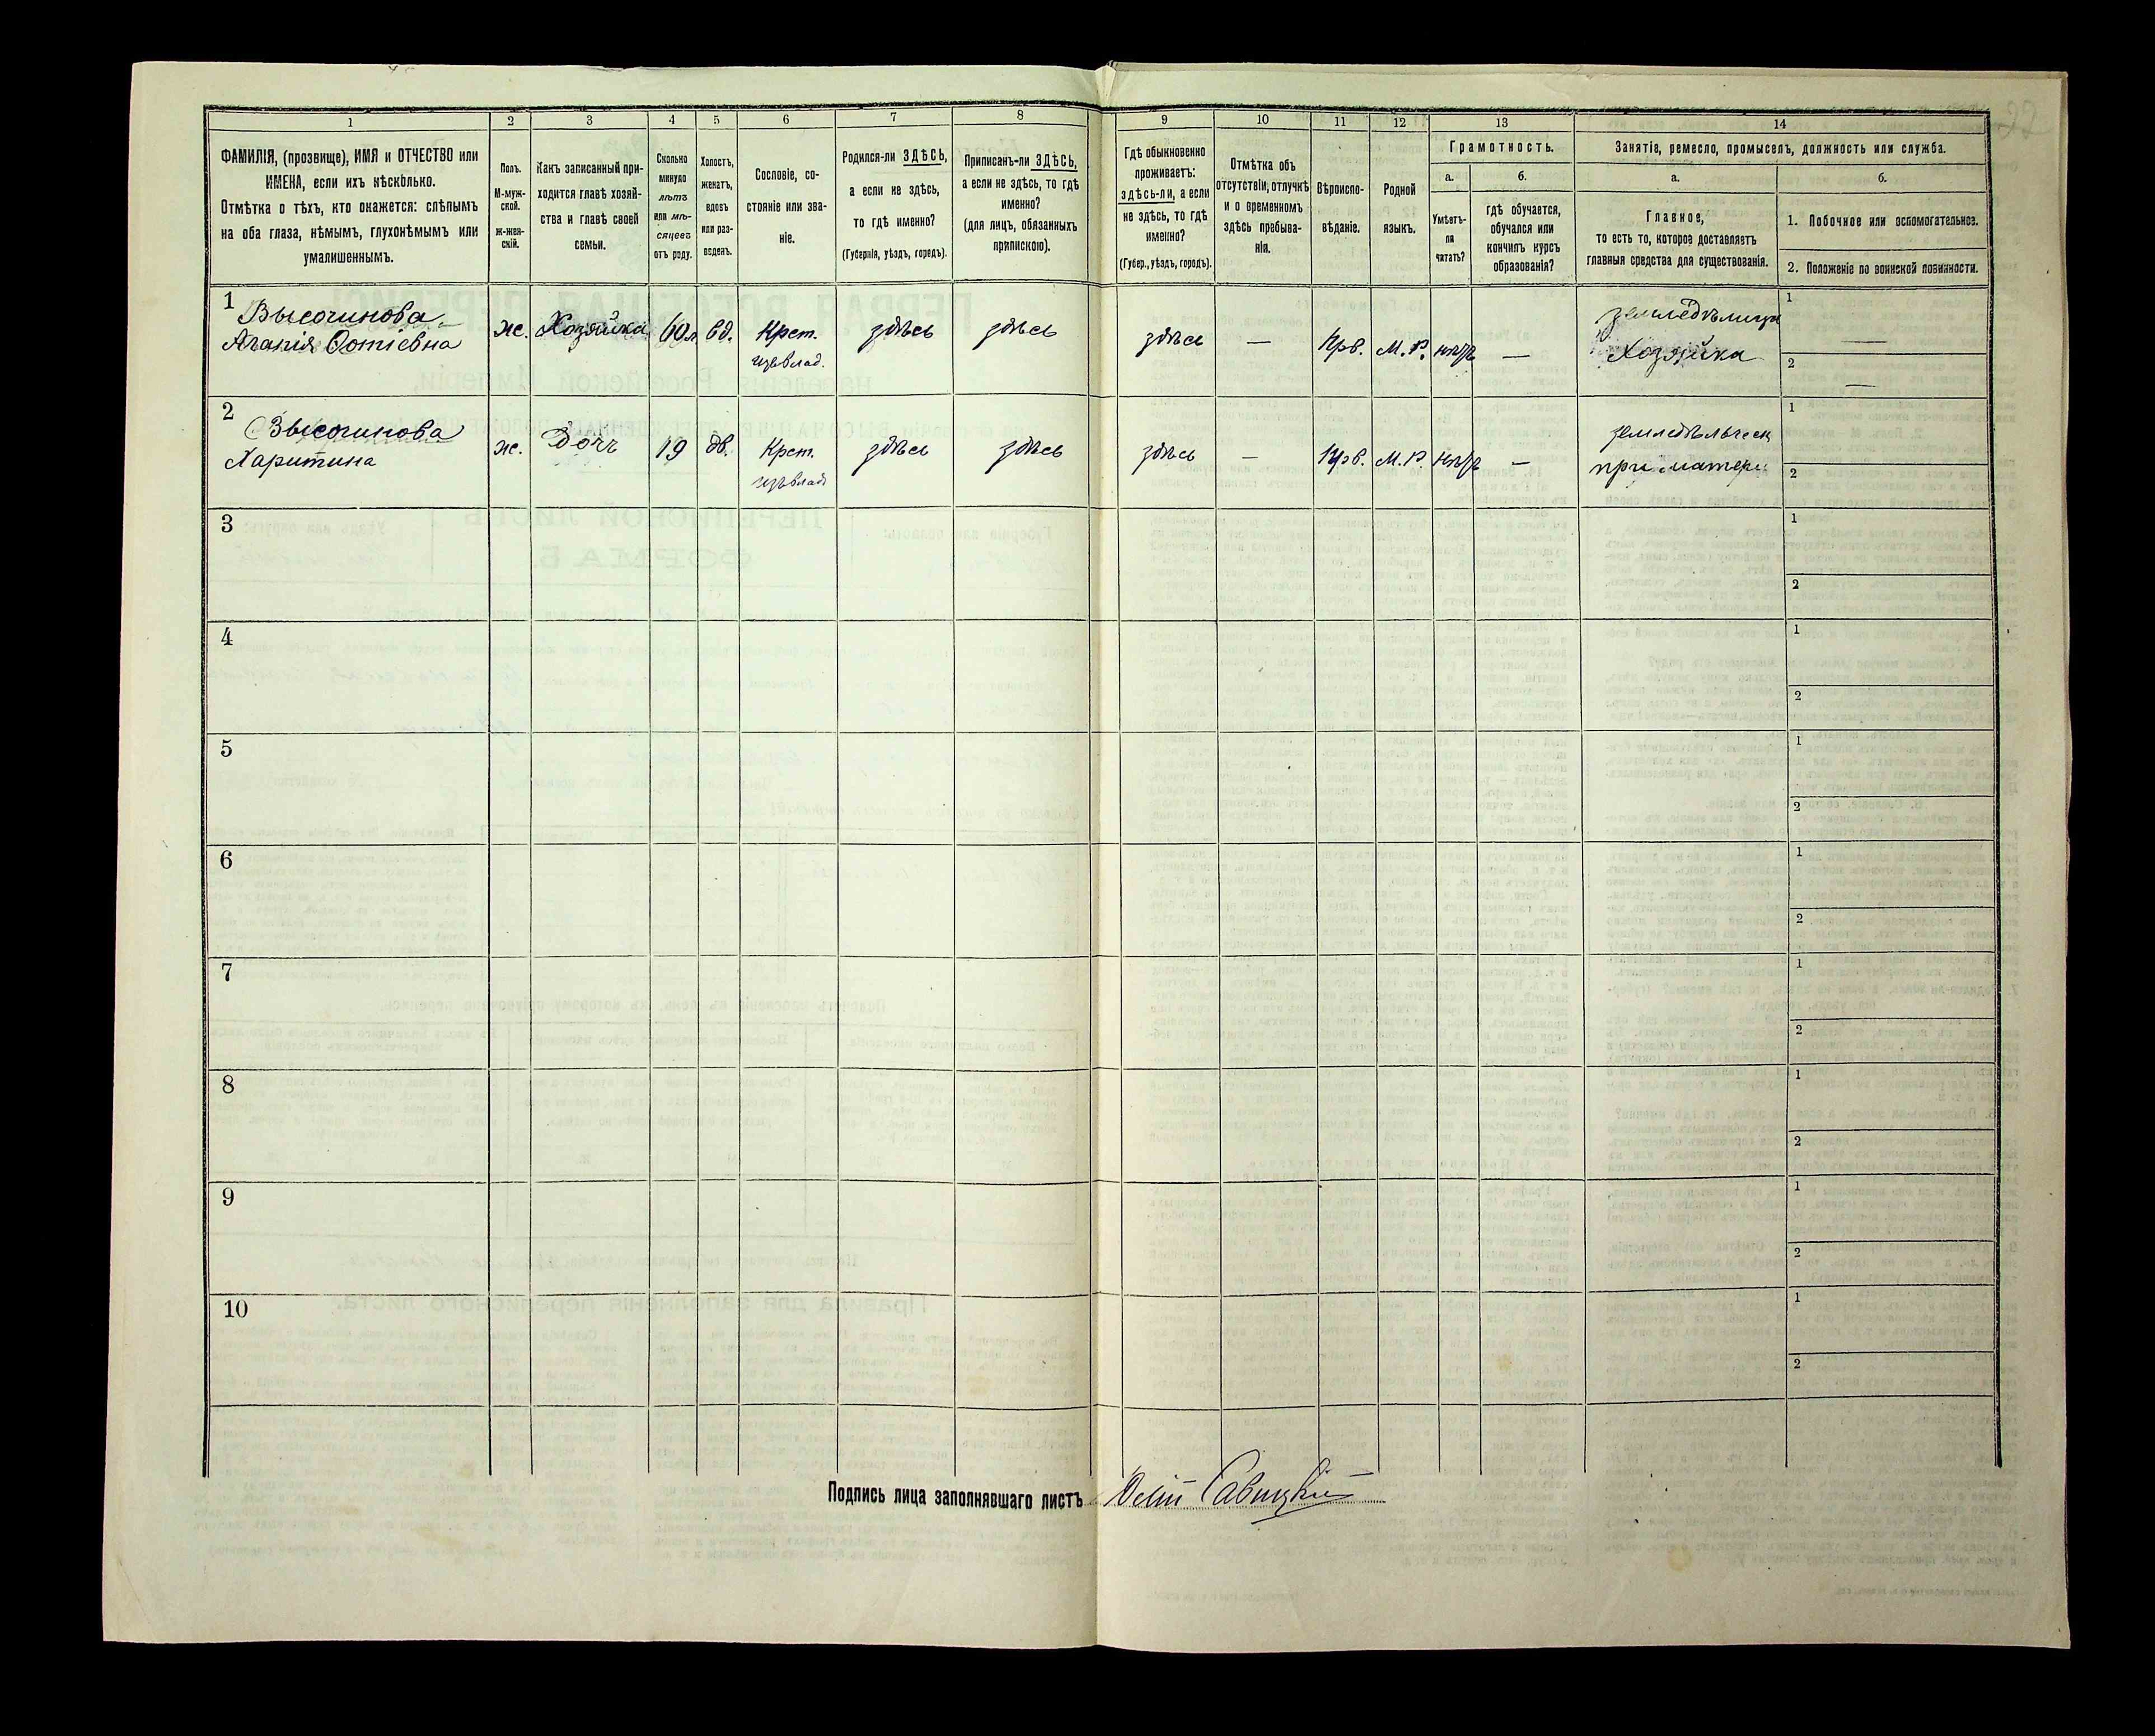 1 2 3 4 5 6 7 8 9 10 11 12 13 14
ФАМИЛІЯ, (прозвище), ИМЯ и ОТЧЕСТВО или
ИМЕНА, если ихъ нѣсколько.
Отмѣтка о тѣхъ, кто окажется: слѣпымъ
на оба глаза, нѣмымъ, глухонѣмымъ или
умалишеннымъ.
Полъ.
М-муж-
ской.
Ж-жен-
скій.
Какъ записанный при-
ходится главѣ хозяй-
ства и главѣ своей
семьи.
Сколько
минуло
лѣтъ
или мѣ-
сяцевъ
отъ роду.
Холостъ,
женатъ,
вдовъ
или раз-
веденъ.
Сословіе, со-
стояніе или зва-
ніе.
Родился-ли ЗДѢСЬ,
а если не здѣсь,
то гдѣ именно?
(Губернія, уѣздъ, городъ).
Приписанъ-ли ЗДѢСЬ,
а если не здѣсь, то гдѣ
именно?
(для лицъ, обязанныхъ
припискою).
Гдѣ обыкновенно
проживаетъ:
здѣсь-ли, а если
не здѣсь, то гдѣ
именно?
(Губер., уѣздъ, городъ).
Отмѣтка объ
отсутствіи, отлучкѣ
и о временномъ
здѣсь пребыва-
ніи.
Вѣроиспо-
вѣданіе.
Родной
языкъ.
Грамотность.
а.
Умѣетъ-
ли
читать?
б.
гдѣ обучается,
обучался или
кончилъ курсъ
образованія?
Занятіе, ремесло, промыселъ, должность или служба.
а.
Главное,
то есть то, которое доставляетъ
главныя средства для существованія.
б.
1. Побочное или вспомогательное.
2. Положеніе по воинской повинности.
1
Высочинова
Агапія Фотіевна
ж. Хозяйка 60 л вд. Крест.
изъ влад.
здѣсь здѣсь здѣсь — Прв. М. Р. —
земледѣлица
Хозяйка
1 —
2 —
2
Высочинова
Харитина
ж. Дочь 19 дв. Крест.
изъ влад
здѣсь здѣсь здѣсь — Прв. М. Р. —
при матери
1
2
3
1
2
4
1
2
5
1
2
6
1
2
7
1
2
8
1
2
9
1
2
10
1
2
Подпись лица заполнявшаго листъ Савицкій